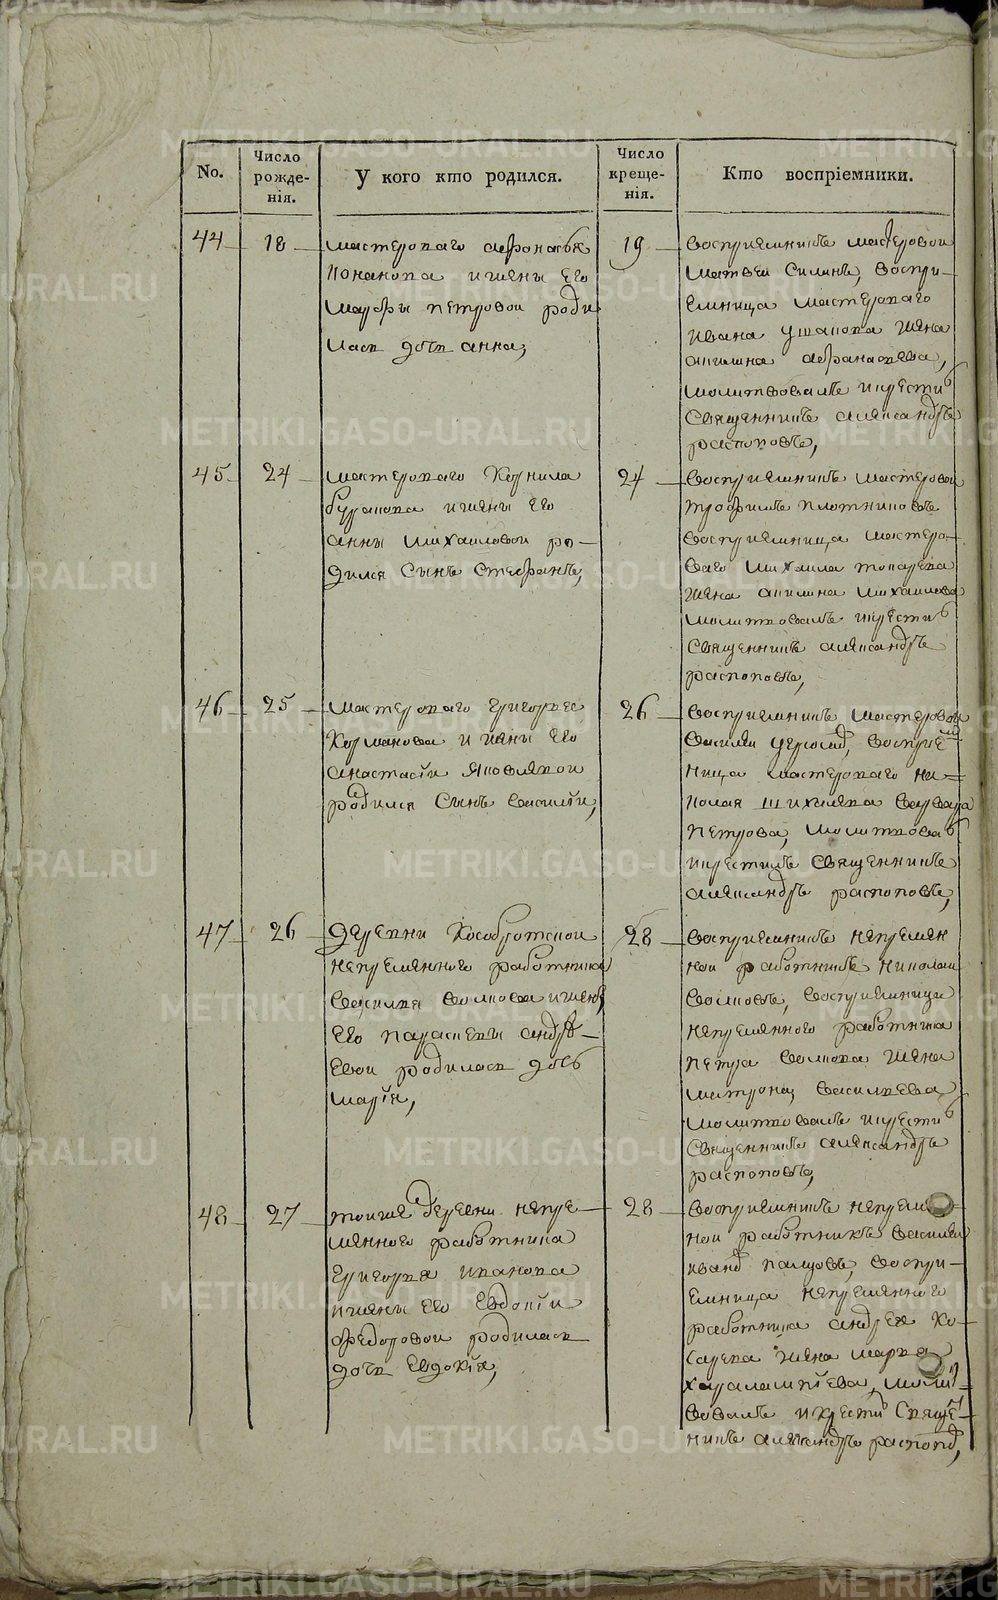 No.
Число рожде-нія.
У кого кто родился.
Число креще-нія.
Кто воспріемники.
44
18
мастероваго афонасья
и жены Его
марфы петровой роди
лась дочь анна,
19
воспріемникъ мастеровой
матвей силинъ, воспри-
емница мастероваго
ивана ушакова жена
афанасьева,
молитвовалъ и крести
священникъ александръ
распоповъ,
45
24
мастероваго корнила
и жены Его
анны михаиловой ро-
дился сынъ стефанъ,
24
воспріемникъ мастеровой
трофимъ плотниковъ
воспріемница мастеро-
ваго михаила токарева
жена акилина михаилова
молитвовалъ и крести
священникъ александръ
распоповъ,
46
25
мастероваго григорья
и жены Его
анастасіи яковлевой
родился сынъ василій,
26
воспріемникъ мастеровой
василий воспріем
ница мастероваго ни-
колая шихалева варвара
петрова, молитвовал
и крестилъ священникъ
александръ распоповъ,
47
26
деревни Кособродской
непременного работника
василья волкова и жены
Его параскевы андре-
евой родилась дочь
марія,
28
воспріемникъ непремен
ной работникъ николай
волковъ, воспріемница
непременного работника
петра волкова жена
матрона васильева
молитвовалъ и крести
священникъ александръ
распоповъ,
48
27
тойже деревни непре-
менного работника
григорья иванова
и жены его Евдокіи
федотовой родилась
дочь Евдокія,
28
воспріемникъ непремен
ной работникъ василей
иванов воспри-
емница непременного
работника андрея ко-
сарева жена марѳа
харалампіева, молит-
вовалъ и крести свяще-
никъ александръ распопо,
METRIKI.GASO-URAL.RU